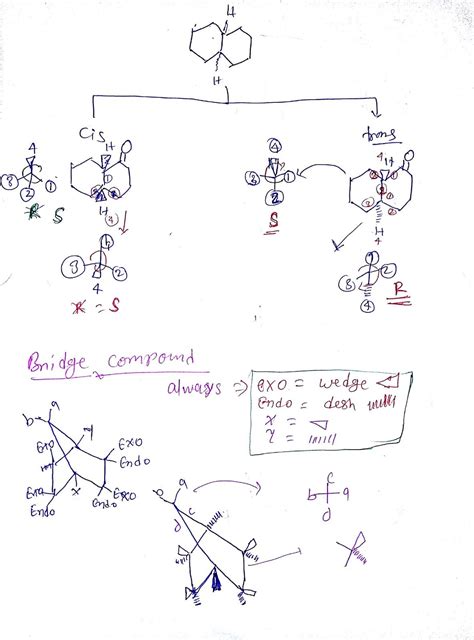 H
H
Cis
trans
4
H
O
③
①
②
R S
H
③
4
9
②
R = S
④
③
①
②
S
4
H
O
①
②
③
H
4
②
③
④
R
Bridge compound
always ⇒
exo = wedge
Endo = desh
X =
Y =
b
a
Y
Exo
Endo
Exo
X
Exo
Endo
Endo
Exo
b
a
c
d
c
b
a
d